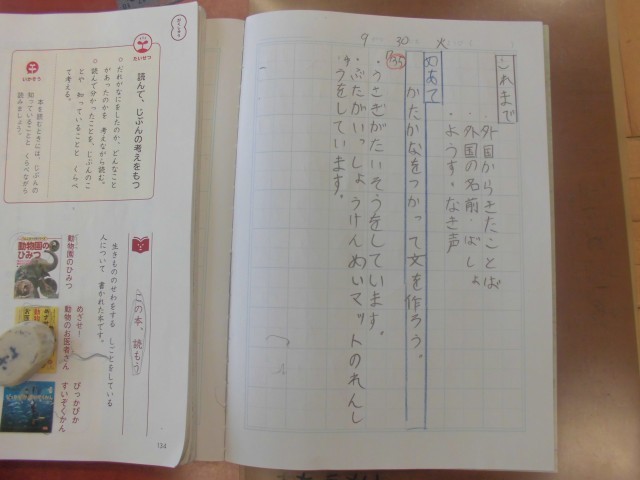 9 30 火
これまで
・外国からきたことば
・外国の名前・ばしょ
・ようす。なき声
めあて
135
かたかなをつかって文を作ろう。
・うさぎがたいそうをしています。
・ぶたがいっしょうけんめいマットのれんし
ゅうをしています。
たいせつ
読んで、じぶんの考えをもつ
○だれがなにをしたのか、どんなこと
があったのかを 考えながら読む。
○読んで分かったことを、じぶんのこ
とや 知っていることと くらべ
て考える。
いかそう
本を読むときには、じぶんの
知っていることと くらべながら
読みましょう。
この本、読もう
生きもののせわをする しごとをしている
人について 書かれた本です。
動物園のひみつ
動物園の
ひみつ
めざせ!
動物のお医者さん
ぴっかぴか
すいぞくかん
134